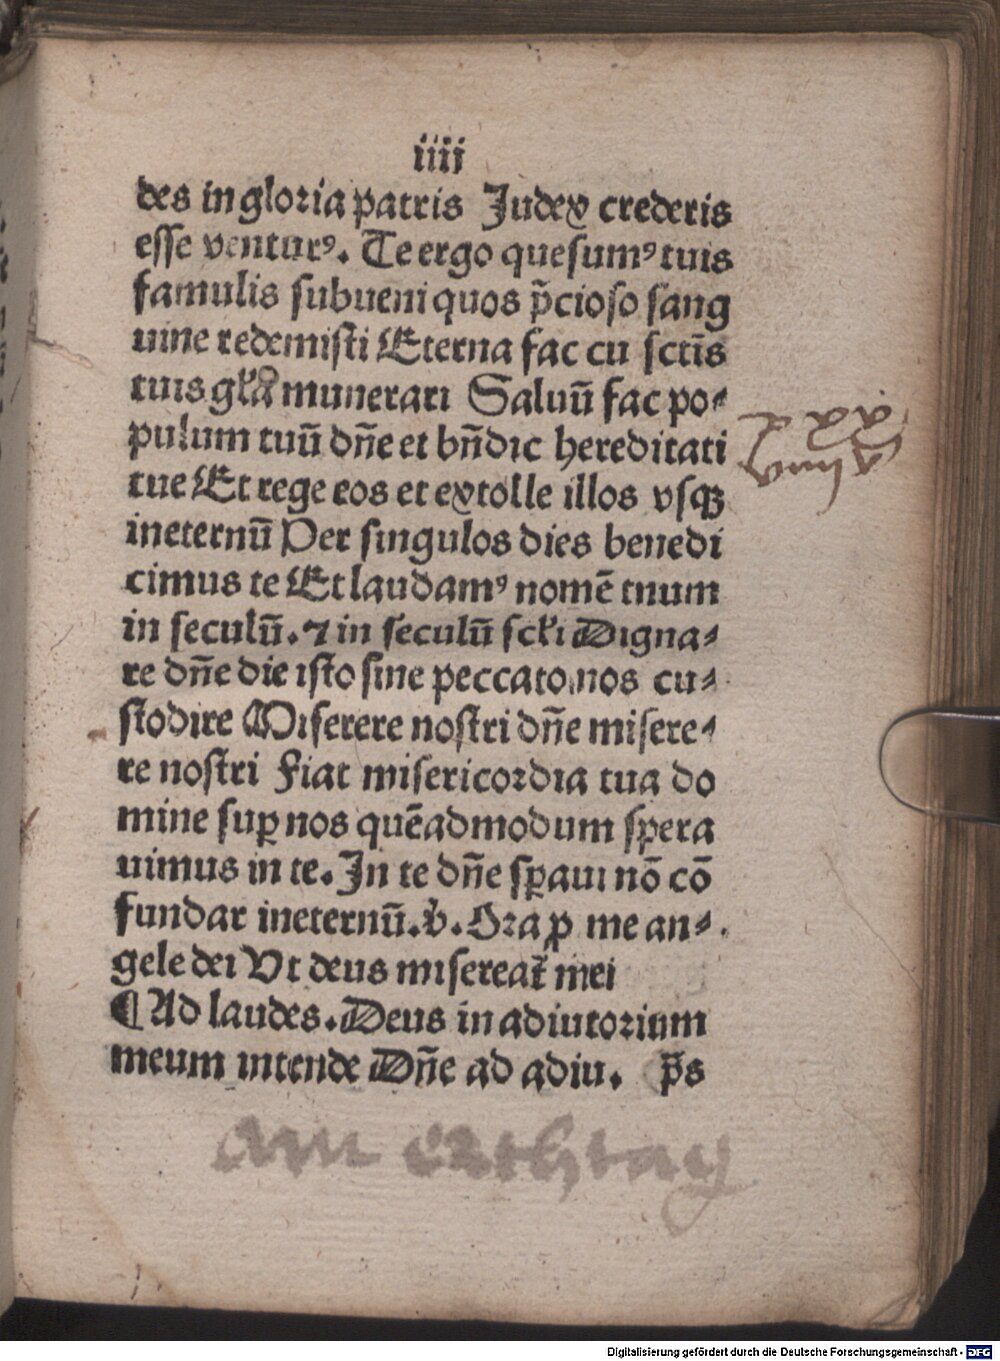 iiii
des in gloria patris Judex crederis
esse venturꝰ. Te ergo quesumꝰ tuis
famulis subueni quos p̄cioso sang
uine redemisti Eterna fac cu sctīs
tuis gl̄a munerari Saluū fac po⸗
pulum tuū dn̄e et bn̄dic hereditati
tue Et rege eos et extolle illos vsqꝫ
ineternū Per singulos dies benedi
cimus te Et laudamꝰ nomē tnum
in seculū. ⁊ in seculū scl̄i Digna⸗
re dn̄e die isto sine peccato nos cu⸗
stodire Miserere nostri dn̄e misere⸗
re nostri Fiat misericordia tua do
mine suꝑ nos quēadmodum spera
uimus in te. In te dn̄e sꝑaui nō cō
fundar ineternū. v̄. Ora ꝓ me an⸗
gele dei Vt deus misereat̄ mei
¶ Ad laudes. Deus in adiutorium
meum intende Dn̄e ad adiu. p̄s
am erthtag
Digitalisierung gefördert durch die Deutsche Forschungsgemeinschaft - DFG